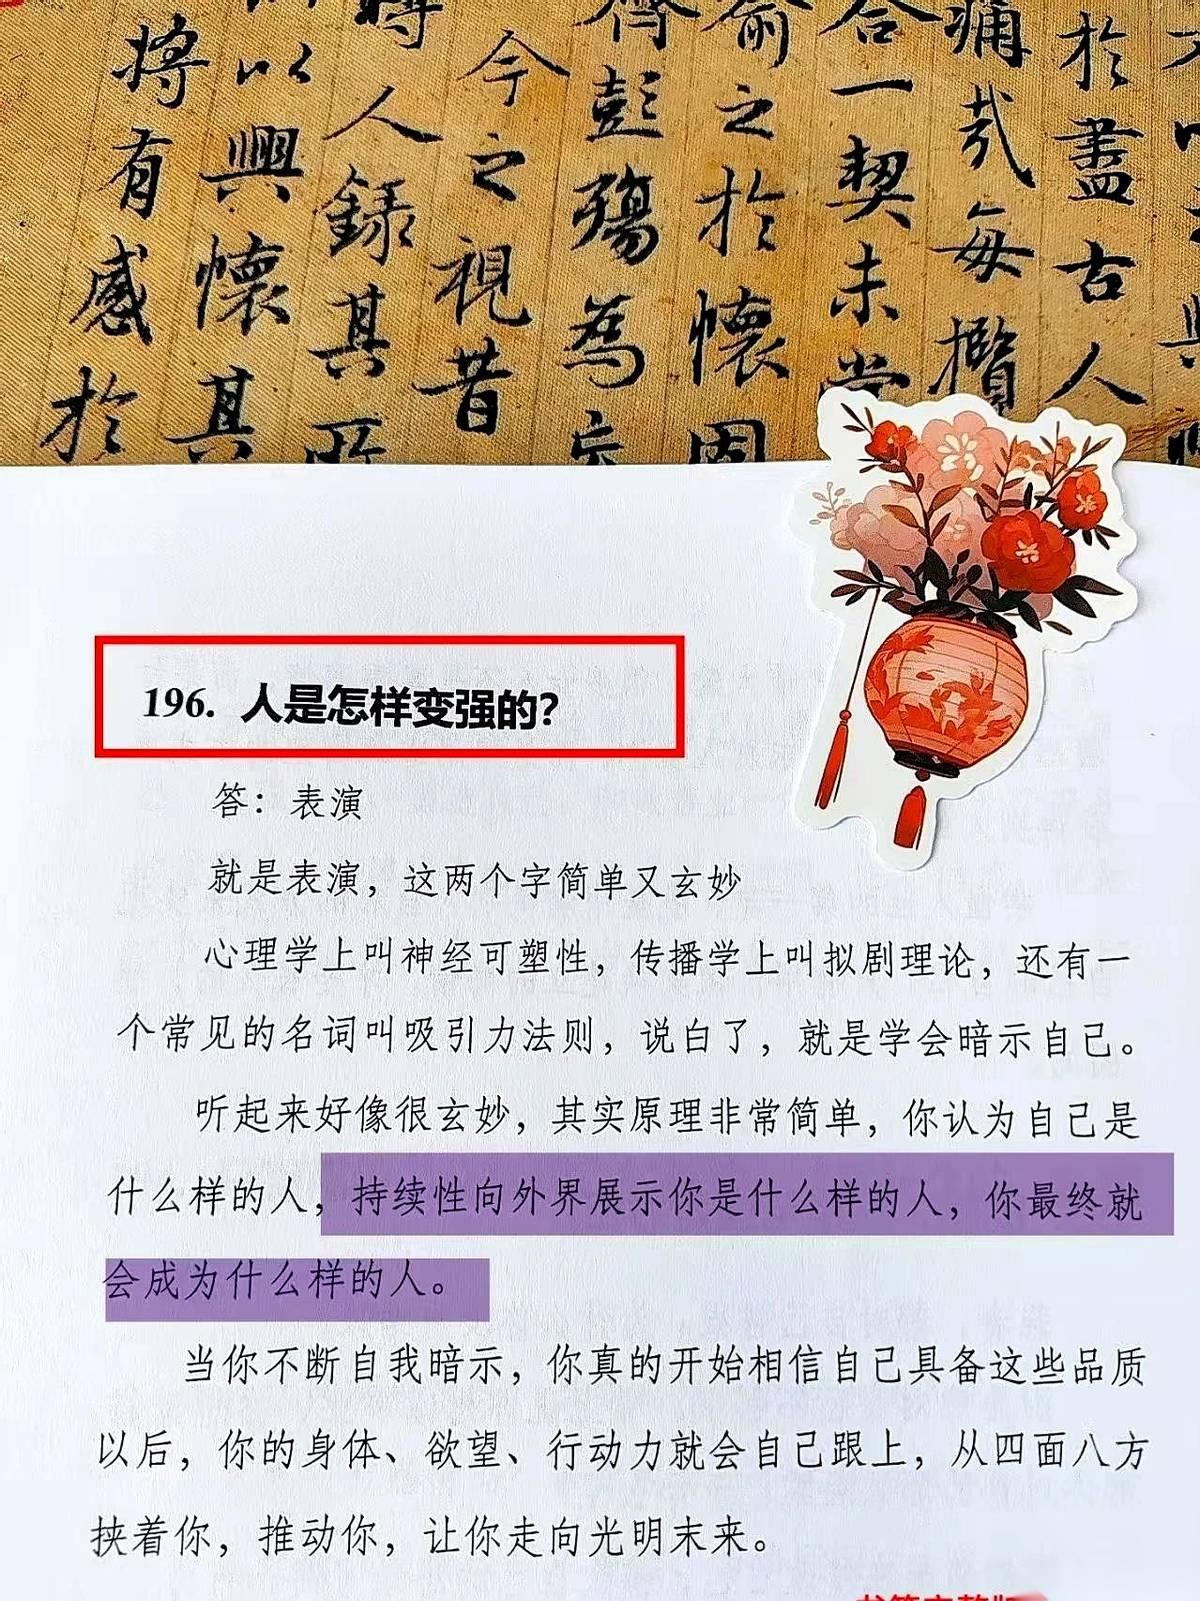 於盡古人
痛於每攬
合一契未嘗
喻之於懷固
齊彭殤為妄
今之視昔
時人錄其所
以興懷其
將有感於
196. 人是怎样变强的？
答：表演
就是表演，这两个字简单又玄妙
心理学上叫神经可塑性，传播学上叫拟剧理论，还有一
个常见的名词叫吸引力法则，说白了，就是学会暗示自己。
听起来好像很玄妙，其实原理非常简单，你认为自己是
什么样的人，持续性向外界展示你是什么样的人，你最终就
会成为什么样的人。
当你不断自我暗示，你真的开始相信自己具备这些品质
以后，你的身体、欲望、行动力就会自己跟上，从四面八方
挟着你，推动你，让你走向光明末来。